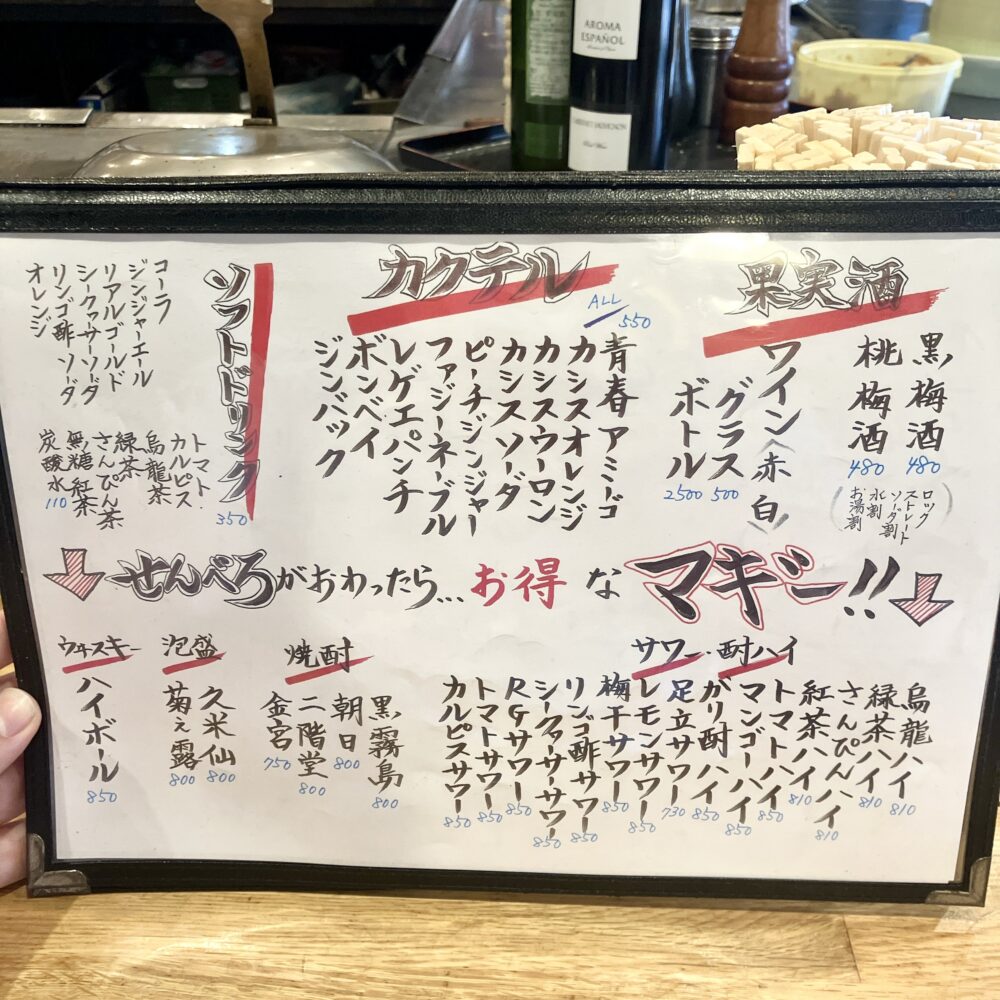 AROMA
ESPAÑOL
CABERNET SAUVIGNON
Red Wine
果実酒
黒梅酒
480
桃梅酒
480
ロック
ストレート
ソーダ割
水割
お湯割
ワイン〈赤白〉
グラス
500
ボトル
2500
カクテル
ALL
550
青春アミーゴ
カシスオレンジ
カシスウーロン
カシスソーダ
ピーチジンジャー
ファジーネーブル
レゲエパンチ
ボンベイ
ジンバック
ソフトドリンク
350
コーラ
ジンジャーエール
リアルゴールド
シークァーサーソーダ
リンゴ酢ソーダ
オレンジ
トマト
カルピス
烏龍茶
緑茶
さんぴん茶
無糖紅茶
炭酸水
110
せんべろがおわったら...お得なマギー!!
サワー・酎ハイ
烏龍ハイ
810
緑茶ハイ
810
さんぴんハイ
810
紅茶ハイ
810
トマトハイ
850
マンゴーハイ
850
がり酎ハイ
850
足立サワー
730
レモンサワー
850
梅干サワー
850
リンゴ酢サワー
850
シークァーサーサワー
850
RGサワー
850
トマトサワー
850
カルピスサワー
850
焼酎
黒霧島
800
朝日
800
二階堂
800
金宮
750
泡盛
久米仙
800
菊之露
800
ウヰスキー
ハイボール
850